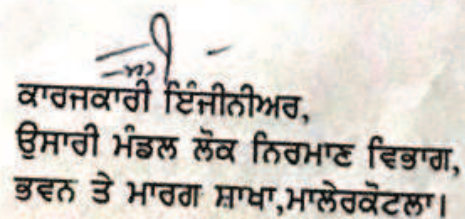 ਕਾਰਜਕਾਰੀ ਇੰਜੀਨੀਅਰ,
ਉਸਾਰੀ ਮੰਡਲ ਲੋਕ ਨਿਰਮਾਣ ਵਿਭਾਗ,
ਭਵਨ ਤੇ ਮਾਰਗ ਸ਼ਾਖਾ,ਮਾਲੇਰਕੋਟਲਾ।